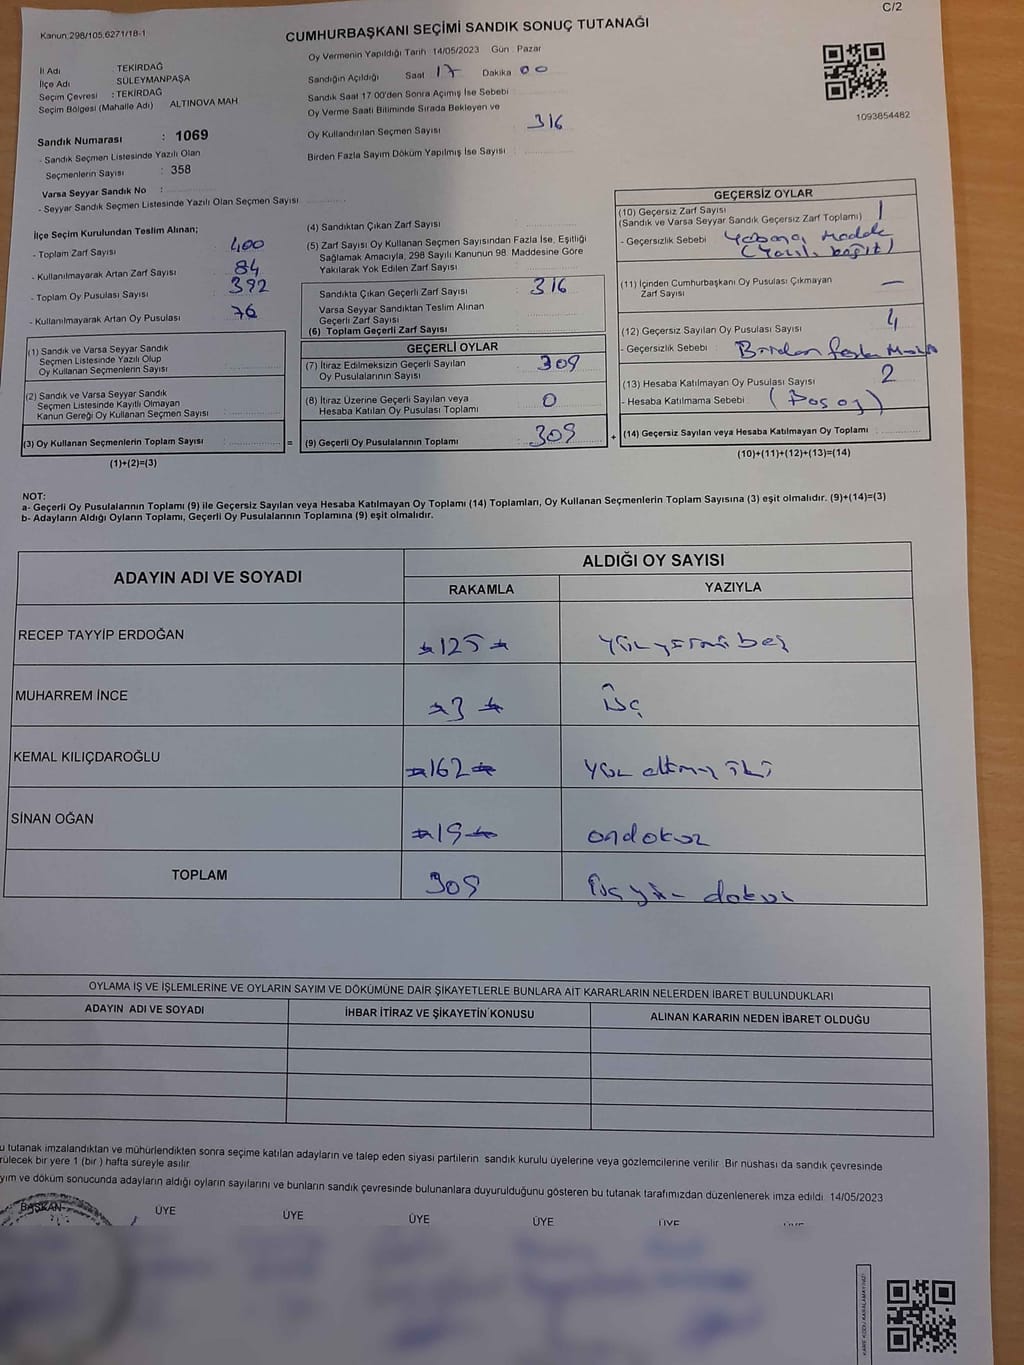 C/2
Kanun:298/105,6271/18-1
CUMHURBAŞKANI SEÇİMİ SANDIK SONUÇ TUTANAĞI
Oy Vermenin Yapıldığı Tarih : 14/05/2023 Gün : Pazar
İl Adı : TEKİRDAĞ
İlçe Adı : SÜLEYMANPAŞA
Seçim Çevresi : TEKİRDAĞ
Seçim Bölgesi (Mahalle Adı) : ALTINOVA MAH
Sandığın Açıldığı : Saat 17 Dakika 00
Sandık Saat 17:00'den Sonra Açımış İse Sebebi :
Oy Verme Saati Bitiminde Sırada Bekleyen ve
Oy Kullandırılan Seçmen Sayısı : 316
Birden Fazla Sayım Döküm Yapılmış İse Sayısı :
1093854482
Sandık Numarası : 1069
- Sandık Seçmen Listesinde Yazılı Olan
Seçmenlerin Sayısı : 358
Varsa Seyyar Sandık No :
- Seyyar Sandık Seçmen Listesinde Yazılı Olan Seçmen Sayısı :
İlçe Seçim Kurulundan Teslim Alınan;
- Toplam Zarf Sayısı : 400
- Kullanılmayarak Artan Zarf Sayısı : 84
- Toplam Oy Pusulası Sayısı : 392
- Kullanılmayarak Artan Oy Pusulası : 76
(1) Sandık ve Varsa Seyyar Sandık
Seçmen Listesinde Yazılı Olup
Oy Kullanan Seçmenlerin Sayısı :
(2) Sandık ve Varsa Seyyar Sandık
Seçmen Listesinde Kayıtlı Olmayan
Kanun Gereği Oy Kullanan Seçmen Sayısı :
(3) Oy Kullanan Seçmenlerin Toplam Sayısı :
(1)+(2)=(3)
=
(4) Sandıktan Çıkan Zarf Sayısı :
(5) Zarf Sayısı Oy Kullanan Seçmen Sayısından Fazla İse, Eşitliği
Sağlamak Amacıyla, 298 Sayılı Kanunun 98. Maddesine Göre
Yakılarak Yok Edilen Zarf Sayısı :
Sandıkta Çıkan Geçerli Zarf Sayısı : 316
Varsa Seyyar Sandıktan Teslim Alınan
Geçerli Zarf Sayısı :
(6) Toplam Geçerli Zarf Sayısı :
GEÇERLİ OYLAR
(7) İtiraz Edilmeksizin Geçerli Sayılan
Oy Pusulalarının Sayısı : 309
(8) İtiraz Üzerine Geçerli Sayılan veya
Hesaba Katılan Oy Pusulası Toplamı : 0
(9) Geçerli Oy Pusulalarının Toplamı : 309
+
GEÇERSİZ OYLAR
(10) Geçersiz Zarf Sayısı
(Sandık ve Varsa Seyyar Sandık Geçersiz Zarf Toplamı) : 1
- Geçersizlik Sebebi : Yabancı Madde
(Yazılı kağıt)
(11) İçinden Cumhurbaşkanı Oy Pusulası Çıkmayan
Zarf Sayısı : —
(12) Geçersiz Sayılan Oy Pusulası Sayısı : 4
- Geçersizlik Sebebi : Birden fazla
(13) Hesaba Katılmayan Oy Pusulası Sayısı : 2
- Hesaba Katılmama Sebebi : (Boş oy)
(14) Geçersiz Sayılan veya Hesaba Katılmayan Oy Toplamı :
(10)+(11)+(12)+(13)=(14)
NOT:
a- Geçerli Oy Pusulalarının Toplamı (9) ile Geçersiz Sayılan veya Hesaba Katılmayan Oy Toplamı (14) Toplamları, Oy Kullanan Seçmenlerin Toplam Sayısına (3) eşit olmalıdır. (9)+(14)=(3)
b- Adayların Aldığı Oyların Toplamı, Geçerli Oy Pusulalarının Toplamına (9) eşit olmalıdır.
ADAYIN ADI VE SOYADI
ALDIĞI OY SAYISI
RAKAMLA YAZIYLA
RECEP TAYYİP ERDOĞAN 125 Yüz yirmi beş
MUHARREM İNCE 3 Üç
KEMAL KILIÇDAROĞLU 162 Yüz altmış iki
SİNAN OĞAN 19 ondokuz
TOPLAM 309 Üç yüz dokuz
OYLAMA İŞ VE İŞLEMLERİNE VE OYLARIN SAYIM VE DÖKÜMÜNE DAİR ŞİKAYETLERLE BUNLARA AİT KARARLARIN NELERDEN İBARET BULUNDUKLARI
ADAYIN ADI VE SOYADI İHBAR İTİRAZ VE ŞİKAYETİN KONUSU ALINAN KARARIN NEDEN İBARET OLDUĞU
u tutanak imzalandıktan ve mühürlendikten sonra seçime katılan adayların ve talep eden siyasi partilerin sandık kurulu üyelerine veya gözlemcilerine verilir. Bir nushası da sandık çevresinde
rülecek bir yere 1 (bir ) hafta süreyle asılır.
yım ve döküm sonucunda adayların aldığı oyların sayılarını ve bunların sandık çevresinde bulunanlara duyurulduğunu gösteren bu tutanak tarafımızdan düzenlenerek imza edildi. 14/05/2023
BAŞKAN ÜYE ÜYE ÜYE ÜYE ÜYE ÜYE
KARE KODU KARALAMAYINIZ!